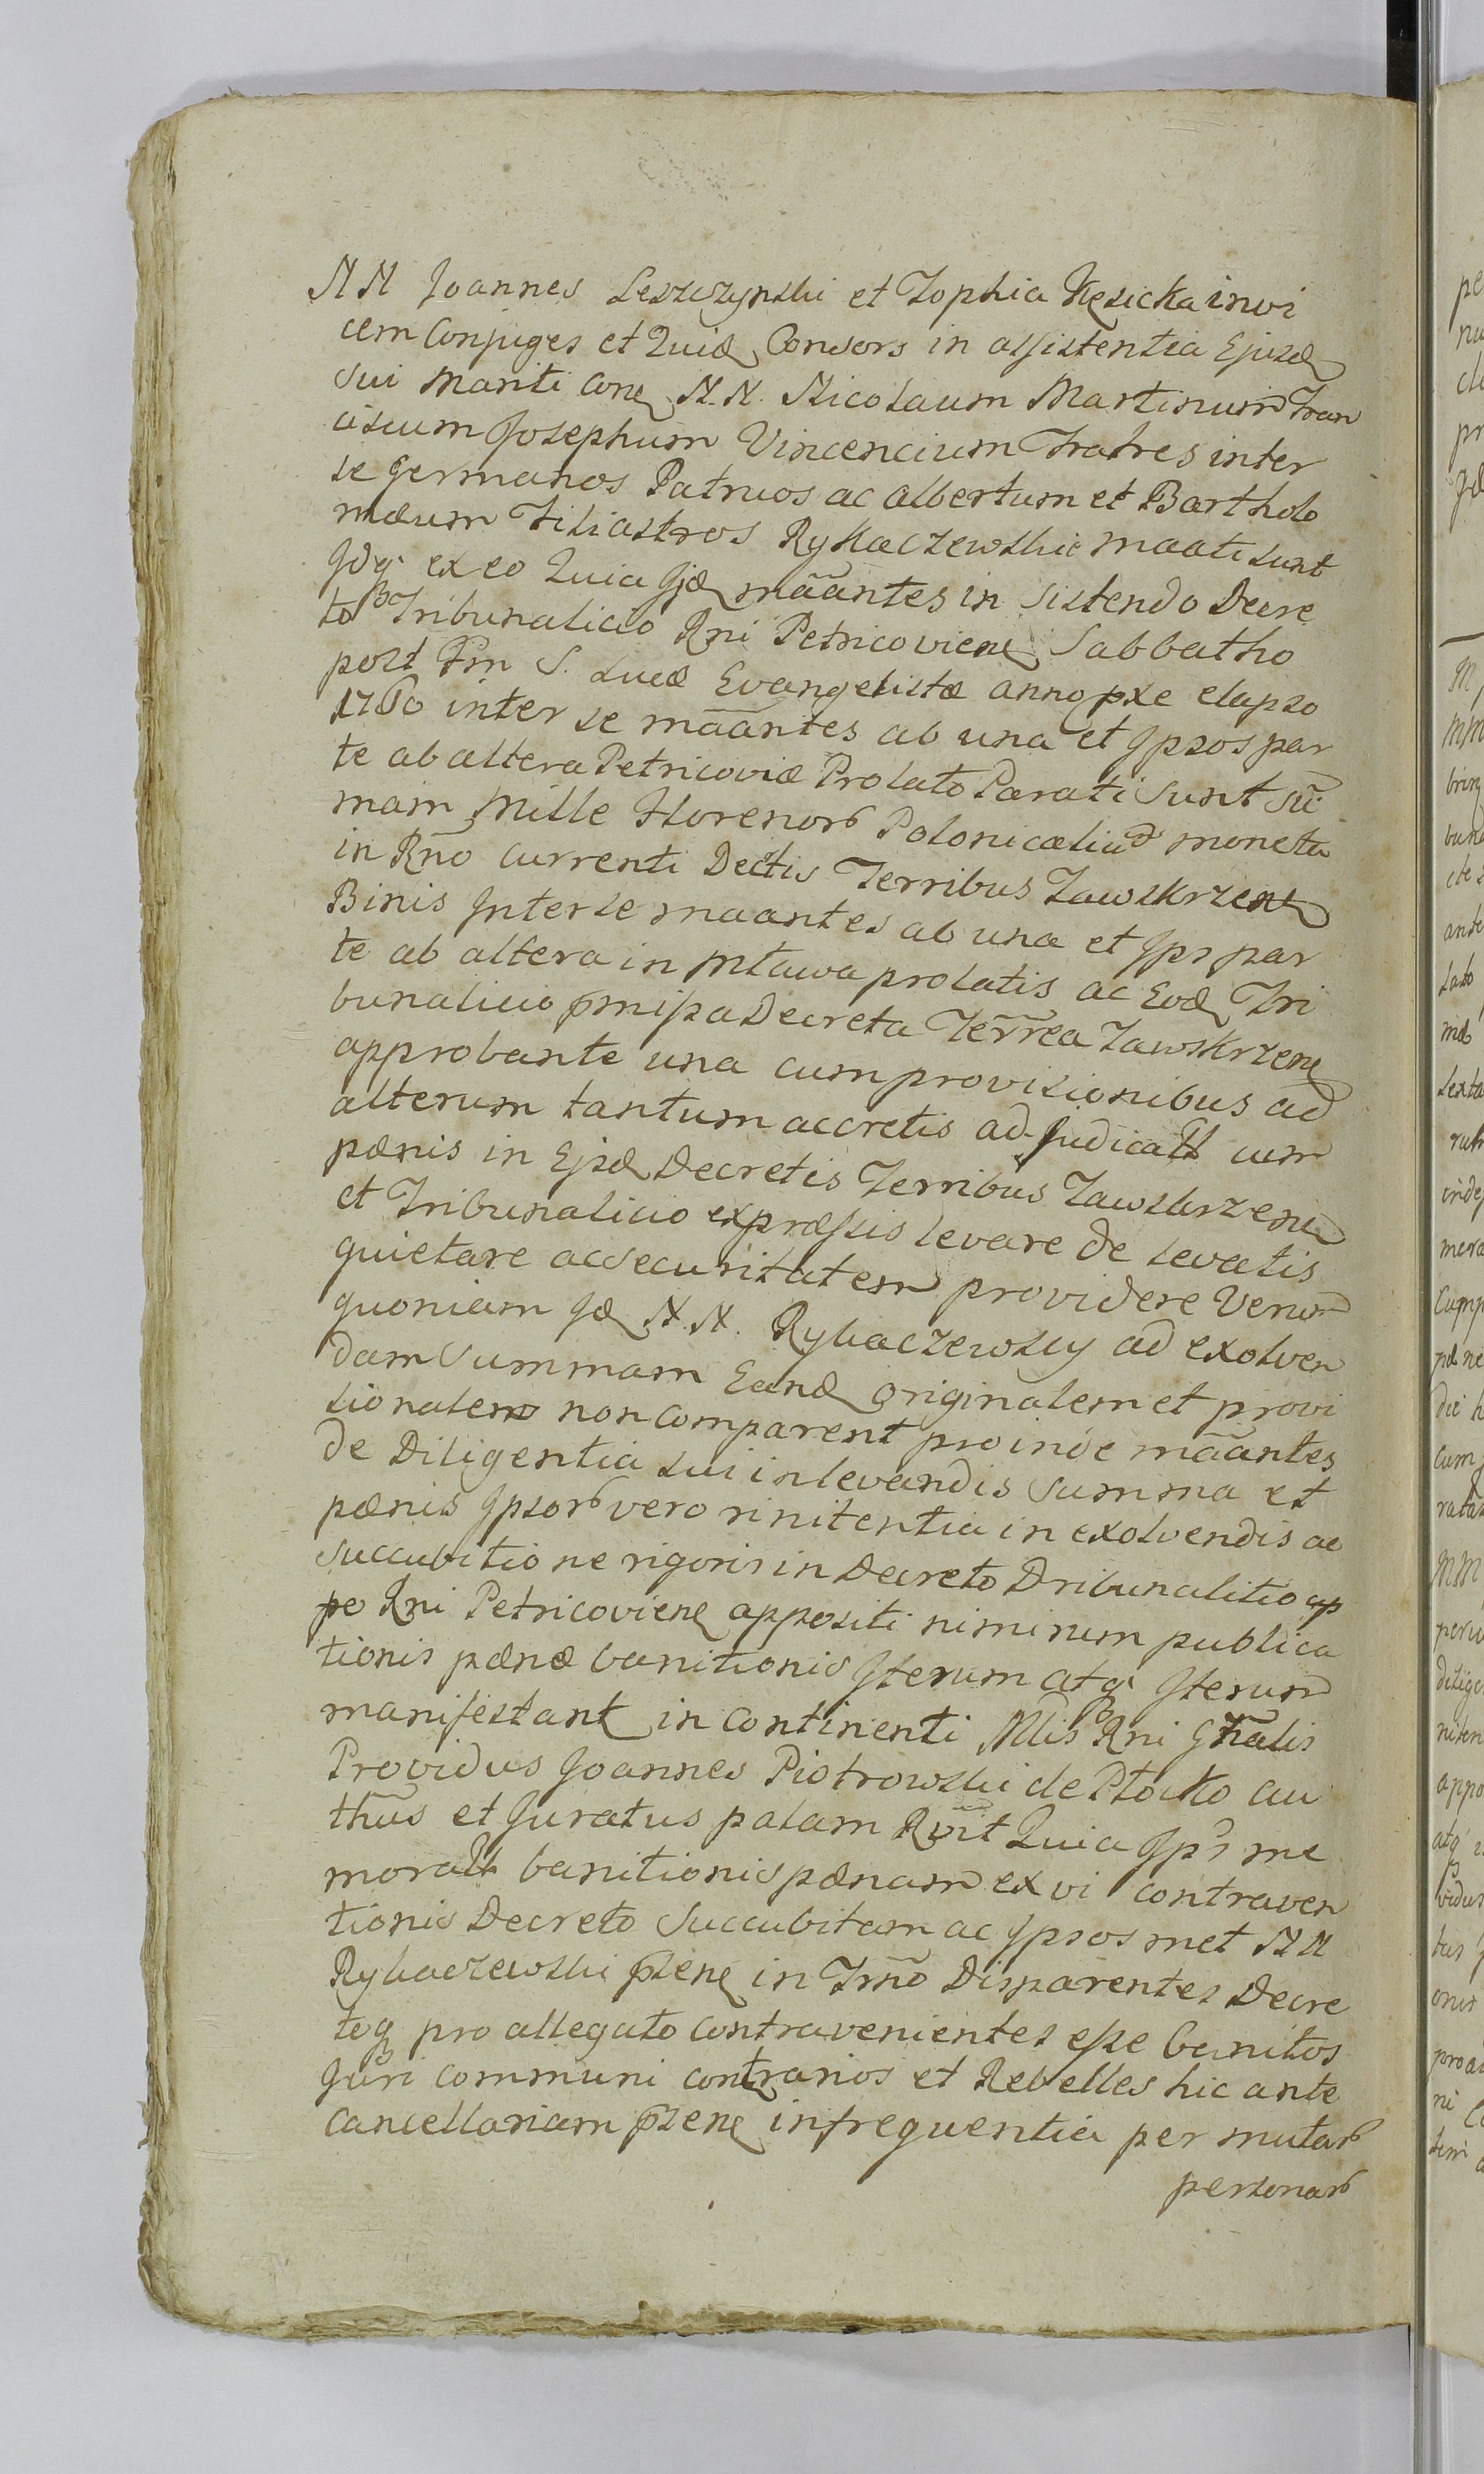 NN Joannes Leszczynski et Zophia Kęsicka invi
cem Conjuges et Quid Consors in assistentia Ejusd
sui Mariti Cone N.N. Nicolaum Martinum Fran
ciscum Josephum Vincencium Fratres inter
se germanos Patruos ac Albertum et Bartholo
mæum Filiastros Rykaczewskie maati sunt
Idq ex eo Quia Ijd mãantes in sistendo Decre
to Tribunalicio Rni Petricoviene Sabbatho
post Fm S. Lucæ Evangelistæ anno pxe elapso
1760 inter se mãantes ab una et Ipsos par
te ab altera Petricoviæ Prolato Parati sunt Sũ
mam Mille Florenor Polonicaliu moneta
in Rño currenti Dectis Terribus Zawskrzen
Binis Inter se maantes ab una et Ips par
te ab altera in Mława prolatis ac Eod Tri
bunalicio pmissa Decreta Terrea Zawskrzene
approbante una cum provisionibus ad
alterum tantum accretis adjudicatt cum
pænis in Ejsd Decretis Terribus Zawskrzene
et Tribunalicio expræssis levare de levatis
quietare ac securitatem providere Verum
quoniam Id N.N. Rykaczewscy ad exolven
dam Summam Eand originalem et provi
sionalem non comparent proinde mãantes
de Diligentia sui in levandis Summa et
pænis Ipsor vero rinitentia in exolvendis ac
succubitione rigoris in Decreto Dribunalitio cp
po Rni Petricoviene appositi nimirum publica
tionis pænæ banitionis Iterum atq Iterum
manifestant in continenti Mlis Rni Gñalis
Providus Joannes Piotrowski de Płocko au
thũs et Juratus palam Rvit Quia Ips me
moratt banitionis pænam ex vi contraven
tionis Decreto Succubitam ac Ipsosmet NN
Rykaczewskie psene in Trno Disparentes Decre
toq pro allegato contravenientes esse banitos
Juri communi contrarios et Rebelles hic ante
Cancellariam psene infrequentia per mutar
personar